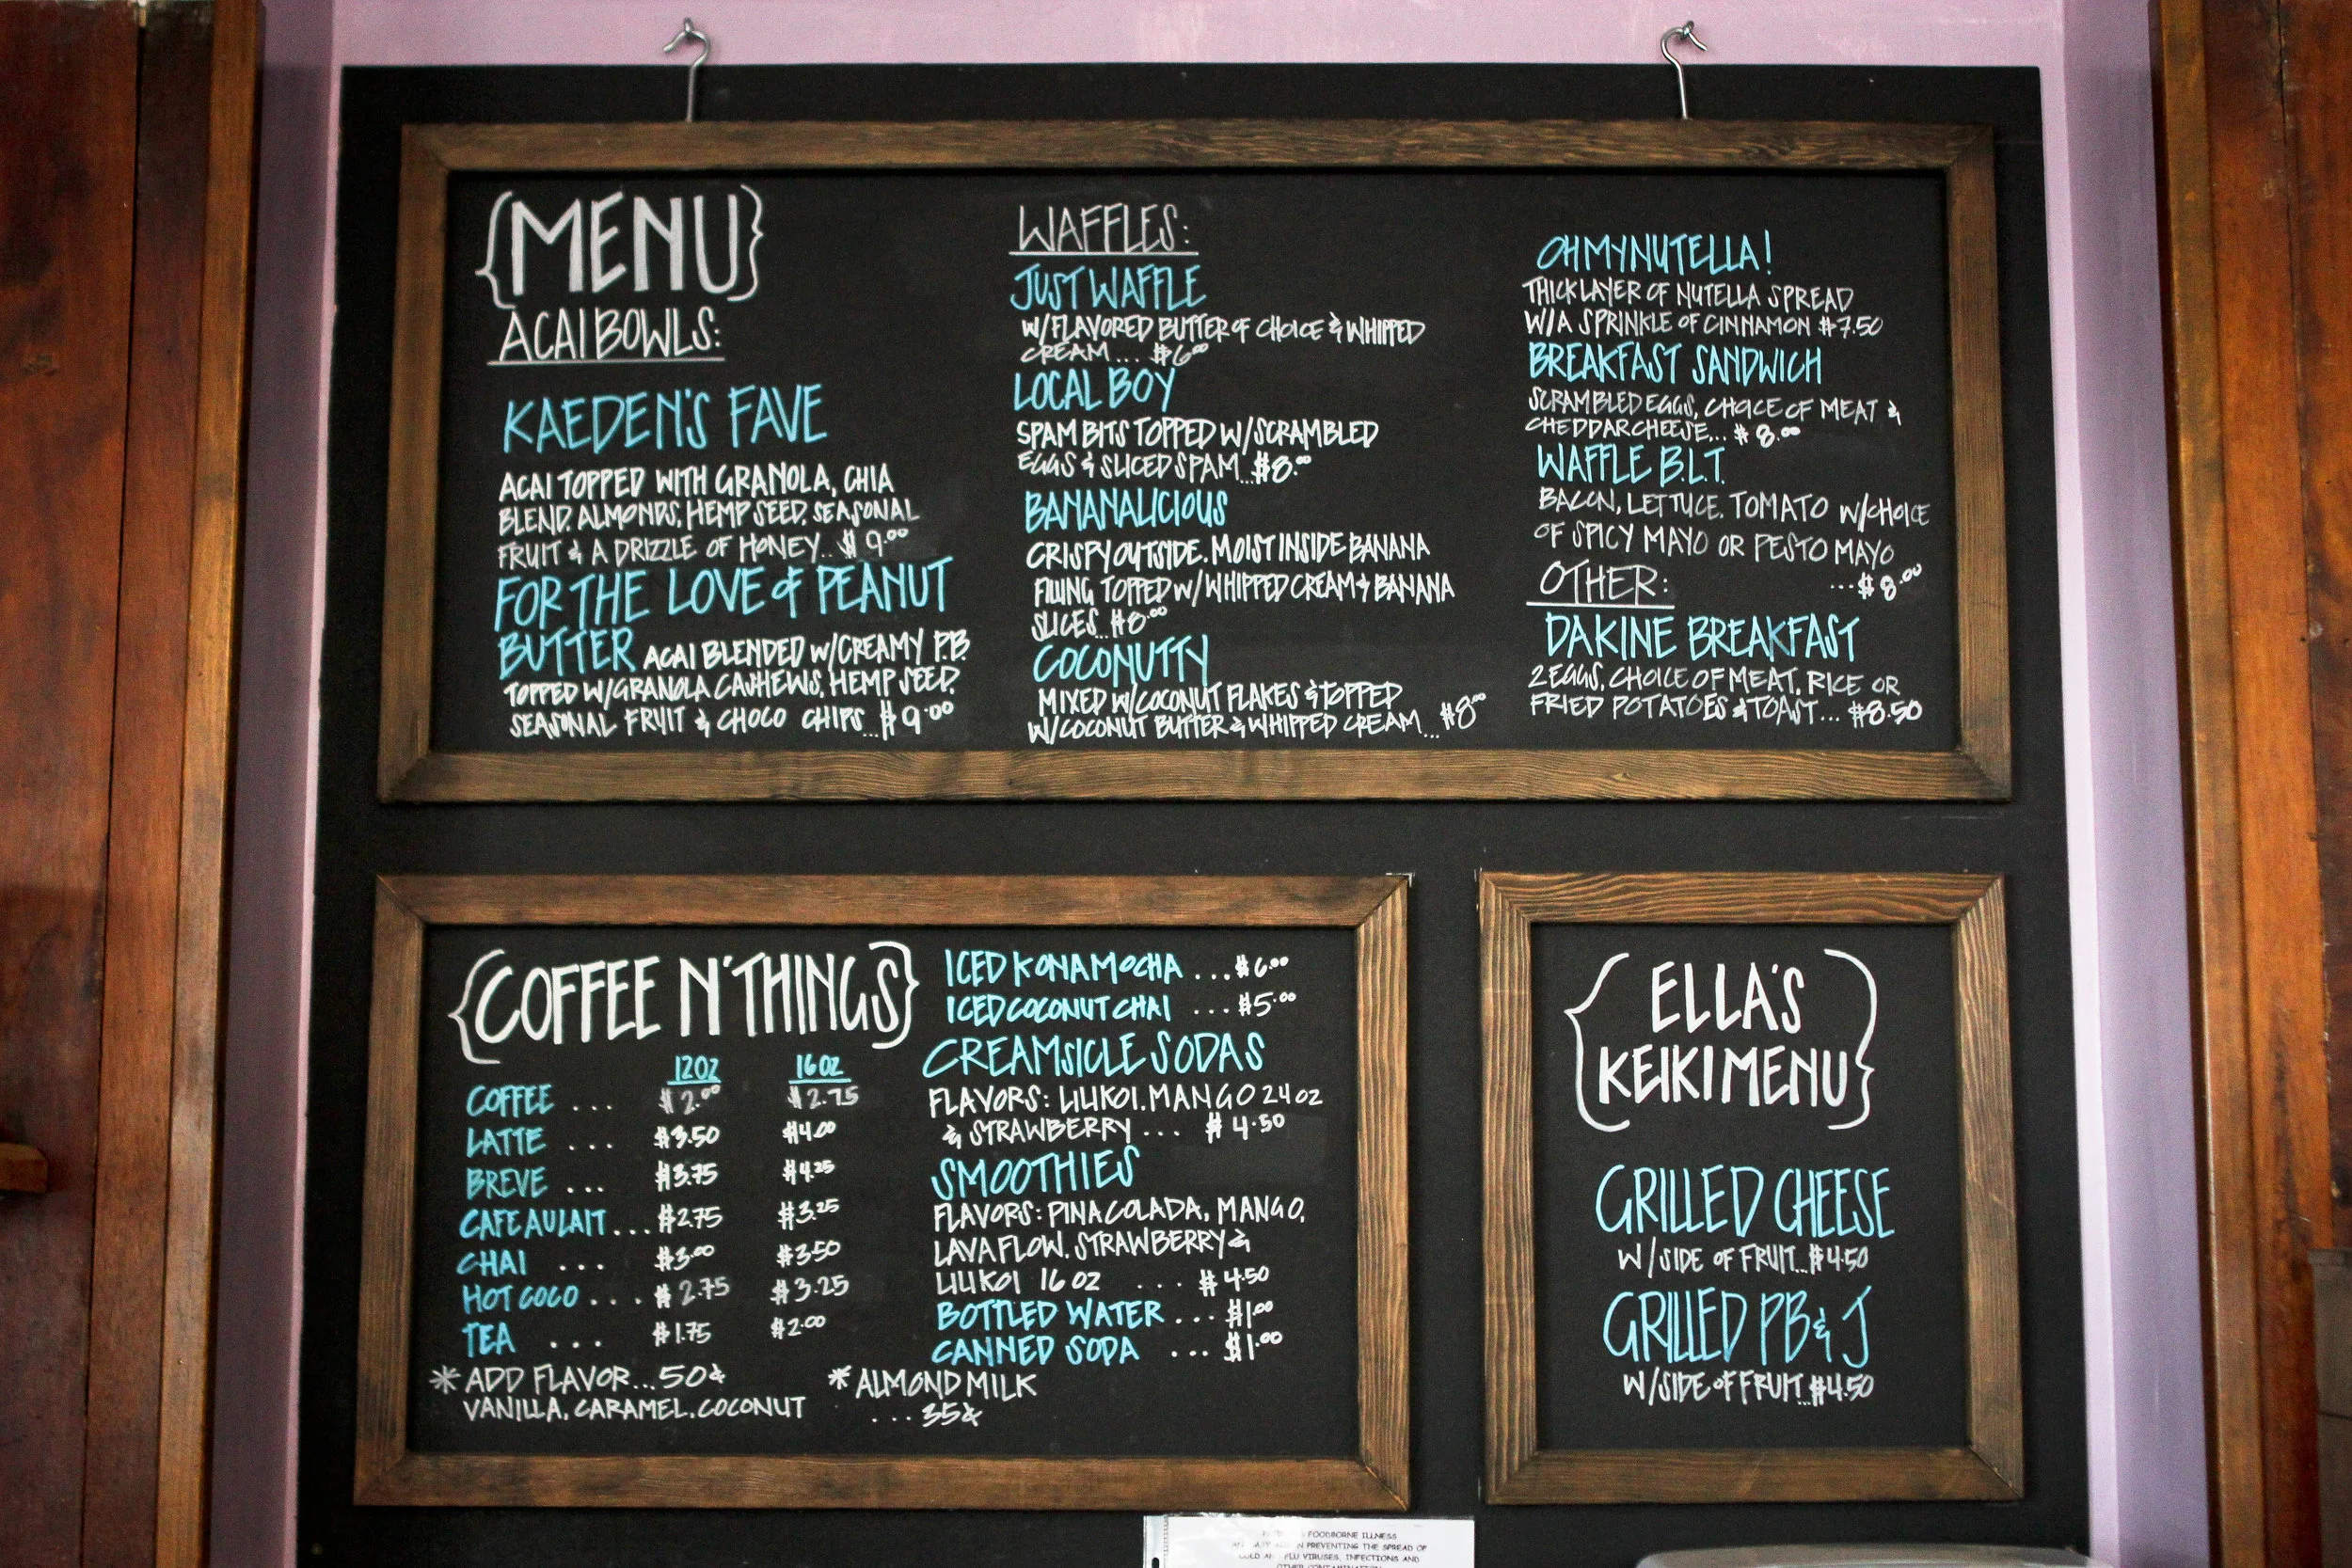 {MENU}
ACAI BOWLS:
KAEDEN'S FAVE
ACAI TOPPED WITH GRANOLA, CHIA
BLEND, ALMONDS, HEMP SEED, SEASONAL
FRUIT & A DRIZZLE OF HONEY.. $9.00
FOR THE LOVE OF PEANUT
BUTTER ACAI BLENDED W/CREAMY P.B.
TOPPED W/GRANOLA CASHEWS, HEMP SEED,
SEASONAL FRUIT & CHOCO CHIPS...$9.00
WAFFLES:
JUST WAFFLE
W/FLAVORED BUTTER OF CHOICE & WHIPPED
CREAM... $6.00
LOCAL BOY
SPAM BITS TOPPED W/SCRAMBLED
EGGS & SLICED SPAM...$8.00
BANANALICIOUS
CRISPY OUTSIDE, MOIST INSIDE BANANA
FILLING TOPPED W/WHIPPED CREAM & BANANA
SLICES...$8.00
COCONUTTY
MIXED W/COCONUT FLAKES & TOPPED
W/COCONUT BUTTER & WHIPPED CREAM...$8.00
OH MY NUTELLA!
THICK LAYER OF NUTELLA SPREAD
W/A SPRINKLE OF CINNAMON $7.50
BREAKFAST SANDWICH
SCRAMBLED EGGS, CHOICE OF MEAT &
CHEDDAR CHEESE... $8.00
WAFFLE B.L.T.
BACON, LETTUCE, TOMATO W/CHOICE
OF SPICY MAYO OR PESTO MAYO
...$8.00
OTHER:
DAKINE BREAKFAST
2 EGGS, CHOICE OF MEAT, RICE OR
FRIED POTATOES & TOAST... $8.50
{COFFEE N' THINGS}
12OZ 16OZ
COFFEE ... $2.00 $2.75
LATTE ... $3.50 $4.00
BREVE ... $3.75 $4.25
CAFE AU LAIT ... $2.75 $3.25
CHAI ... $3.00 $3.50
HOT COCO .... $2.75 $3.25
TEA ... $1.75 $2.00
*ADD FLAVOR...50¢
VANILLA, CARAMEL, COCONUT
*ALMOND MILK
...35¢
ICED KONA MOCHA ...$6.00
ICED COCONUT CHAI ...$5.00
CREAMSICLE SODAS
FLAVORS: LILIKOI, MANGO 24OZ
& STRAWBERRY ... $4.50
SMOOTHIES
FLAVORS: PINA COLADA, MANGO,
LAVA FLOW, STRAWBERRY &
LILIKOI 16 OZ ... $4.50
BOTTLED WATER ... $1.00
CANNED SODA ... $1.00
{ELLA'S
KEIKI MENU}
GRILLED CHEESE
W/SIDE OF FRUIT...$4.50
GRILLED PB & J
W/SIDE OF FRUIT...$4.50
FOODBORNE ILLNESS
IN PREVENTING THE SPREAD OF
COLD AND FLU VIRUSES, INFECTIONS AND